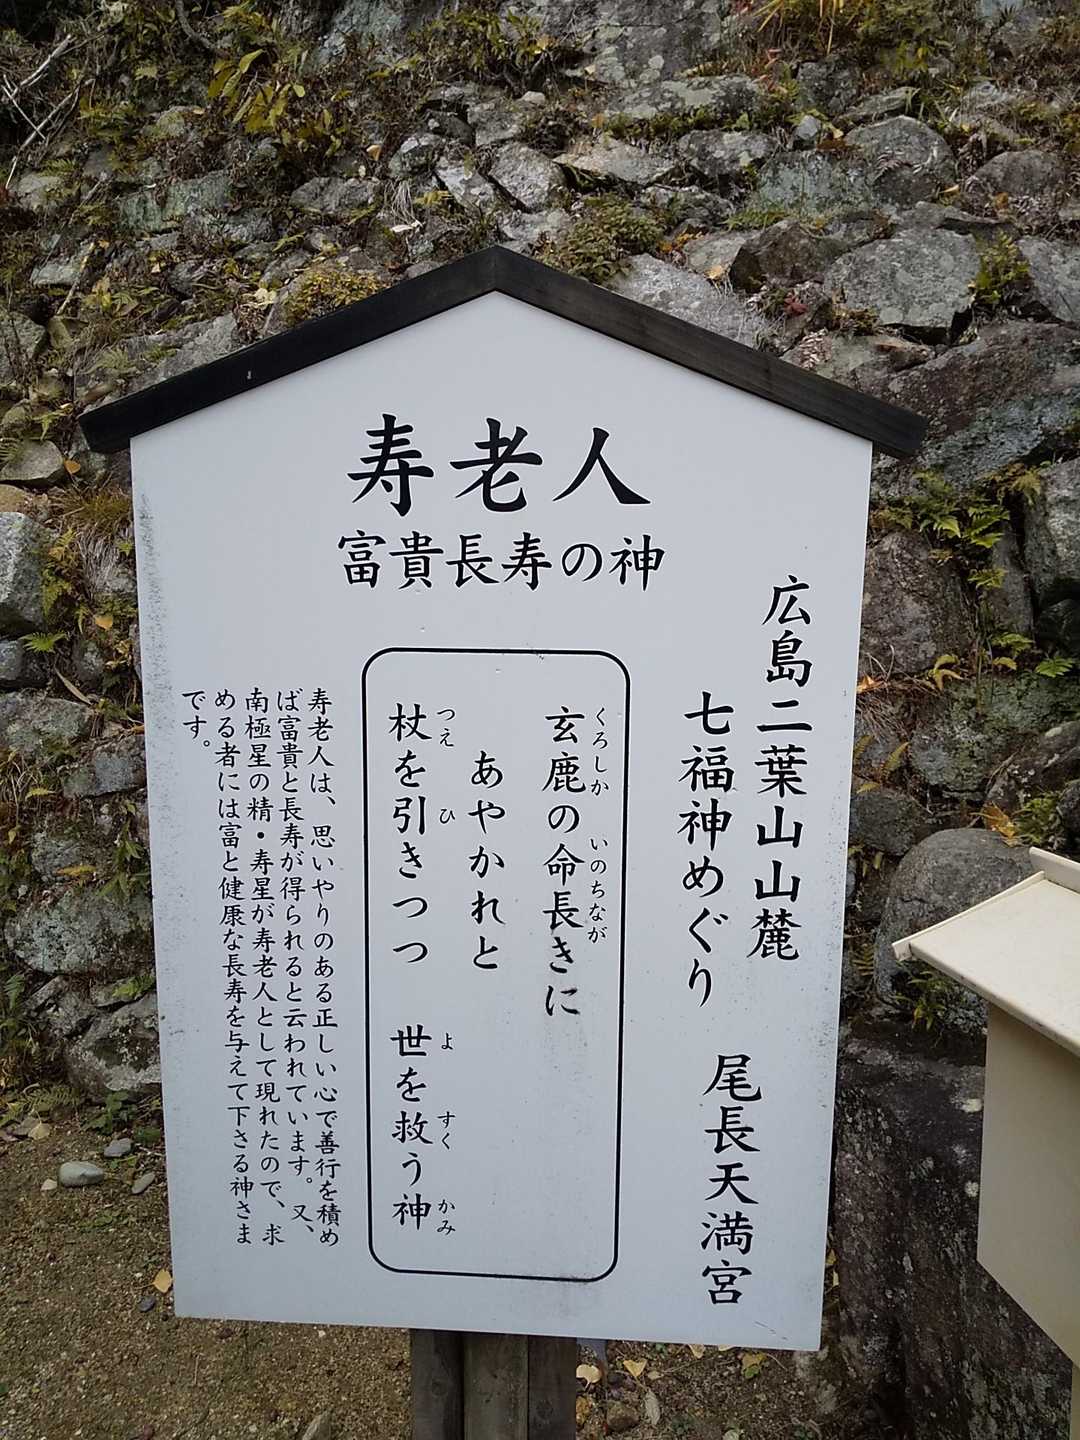 寿老人
富貴長寿の神
広島二葉山山麓
七福神めぐり
尾長天満宮
くろしか いのちなが
玄鹿の命長きに
あやかれと
つえ ひ よ すく かみ
杖を引きつつ 世を救う神
寿老人は、思いやりのある正しい心で善行を積め
ば富貴と長寿が得られると云われています。又、
南極星の精・寿星が寿老人として現れたので、求
める者には富と健康な長寿を与えて下さる神さま
です。